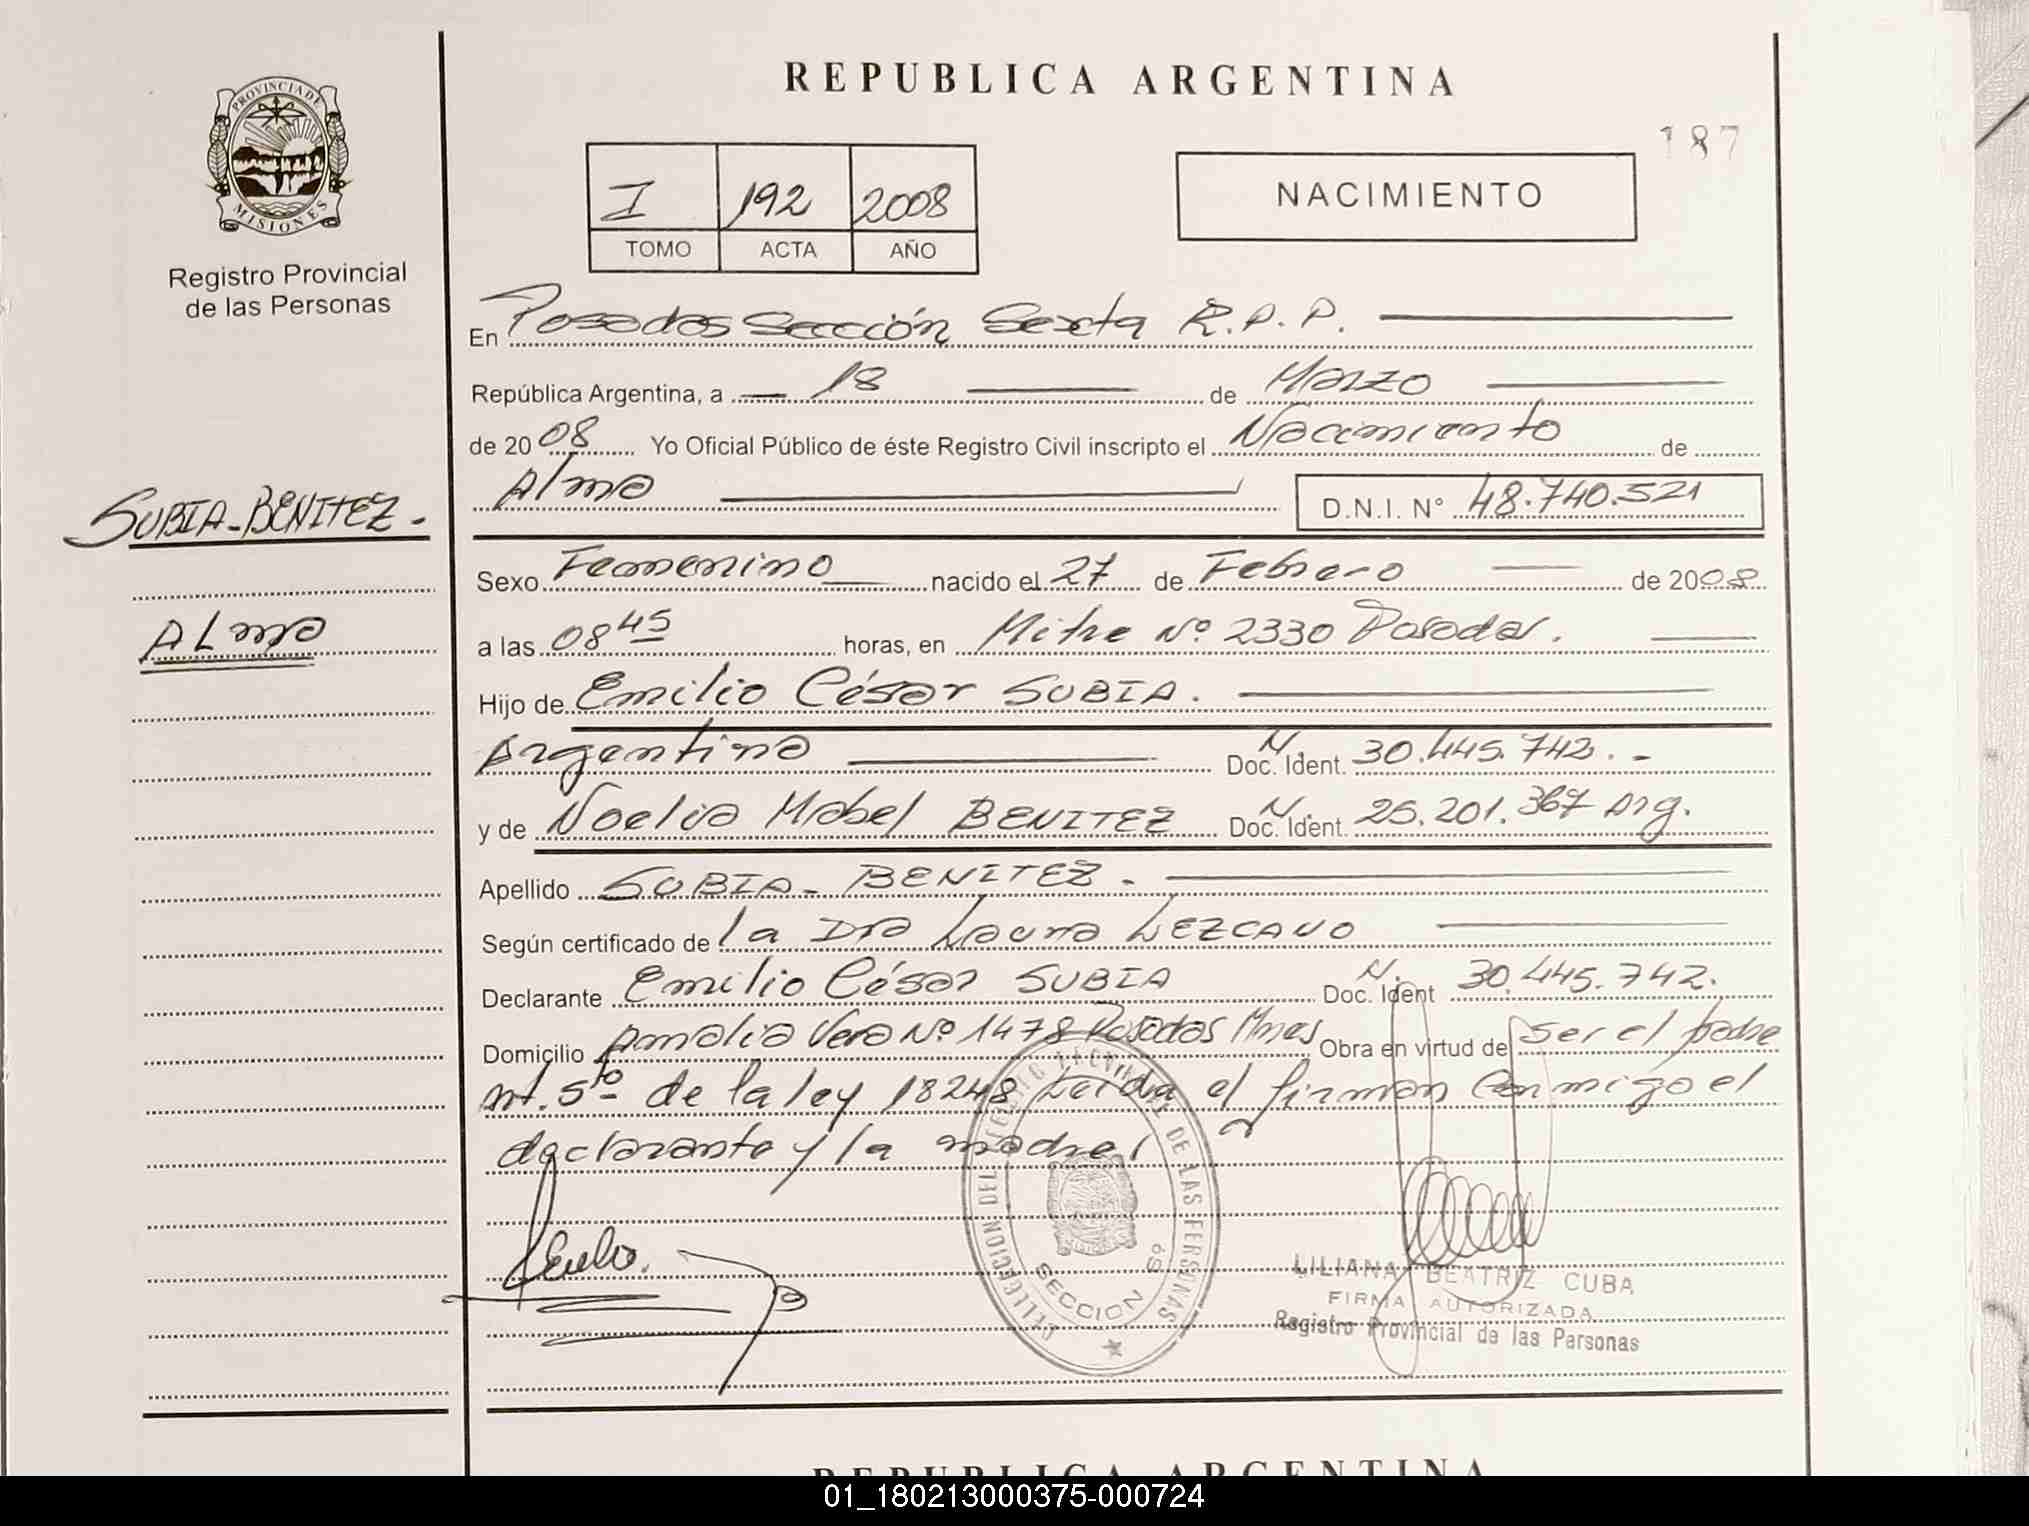 REPUBLICA ARGENTINA
187
PROVINCIA DE
MISIONES
Registro Provincial
de las Personas
I 192 2008
TOMO ACTA AÑO
NACIMIENTO
En Posadas Sección Sexta R.P.P.
República Argentina, a 18 de Marzo
de 2008 Yo Oficial Público de éste Registro Civil inscripto el Nacimiento de
Alma D.N.I. N° 48.740.521
SUBIA-BENITEZ.-
ALma
Sexo Femenino nacido el 27 de Febrero de 2008
a las 08 45 horas, en Mitre Nº 2330 Posadas.
Hijo de Emilio César SUBIA.
Argentino N. Doc. Ident. 30.445.742.-
y de Noelia Mabel BENITEZ N. Doc. Ident. 25.201.367 Arg.
Apellido SUBIA-BENITEZ.
Según certificado de la Dra Laura LEZCANO
Declarante Emilio César SUBIA N. Doc. Ident 30.445.742.
Domicilio Amalia Vera Nº 1478 Posadas Mnes Obra en virtud de ser el padre
Art. 5to de la ley 18248 Leida el firman conmigo el
declarante y la madre
DEL REGISTRO PROVINCIAL DE LAS PERSONAS
SECCION 6º
MISIONES
LILIANA BEATRIZ CUBA
FIRMA AUTORIZADA
Registro Provincial de las Personas
REPUBLICA ARGENTINA
01_180213000375-000724